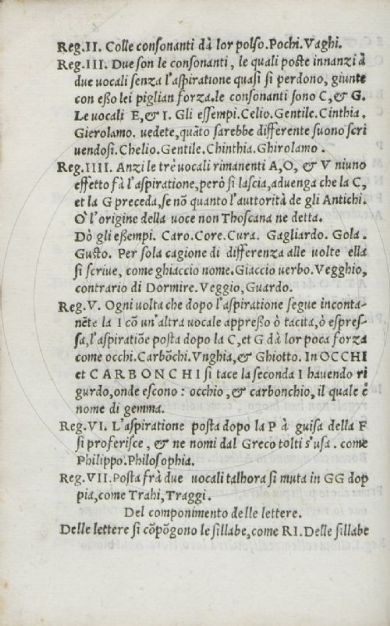 Reg.II. Colle consonanti dà lor polso. Pochi. Vaghi.
Reg.III. Due son le consonanti, le quali poste innanzi à
due uocali senza l'aspiratione quasi si perdono, giunte
con eßo lei piglian forza. le consonanti sono C, & G.
Le uocali E, & I. Gli essempi. Celio. Gentile. Cinthia.
Gierolamo. uedete, quãto sarebbe differente suono scri
uendosi. Chelio. Gentile. Chinthia. Ghirolamo.
Reg.IIII. Anzi le tre uocali rimanenti A, O, & V niuno
effetto fà l'aspiratione, però si lascia, aduenga che la C,
et la G preceda, se nõ quanto l'auttorità de gli Antichi.
O' l'origine della uoce non Thoscana ne detta.
Dò gli eßempi. Caro. Core. Cura. Gagliardo. Gola.
Gusto. Per sola cagione di differenza alle uolte ella
si scriue, come ghiaccio nome. Giaccio uerbo. Vegghio,
contrario di Dormire. Veggio, Guardo.
Reg.V. Ogni uolta che dopo l'aspiratione segue inconta-
nẽte la I cõ un'altra uocale appreßo ò tacita, ò espres-
sa, l'aspiratiõe posta dopo la C, et G dà lor poca forza
come occhi. Carbõchi. Vnghia, & Ghiotto. In OCCHI
et CARBONCHI si tace la seconda I hauendo ri
gurdo, onde escono: occhio, & carbonchio, il quale è
nome di gemma.
Reg.VI. L'aspiratione posta dopo la P à guisa della F
si proferisce, & ne nomi dal Greco tolti s'usa. come
Philippo. Philosophia.
Reg.VII. Posta frà due uocali talhora si muta in GG dop
pia, come Trahi, Traggi.
Del componimento delle lettere.
Delle lettere si cõpõgono le sillabe, come RI. Delle sillabe